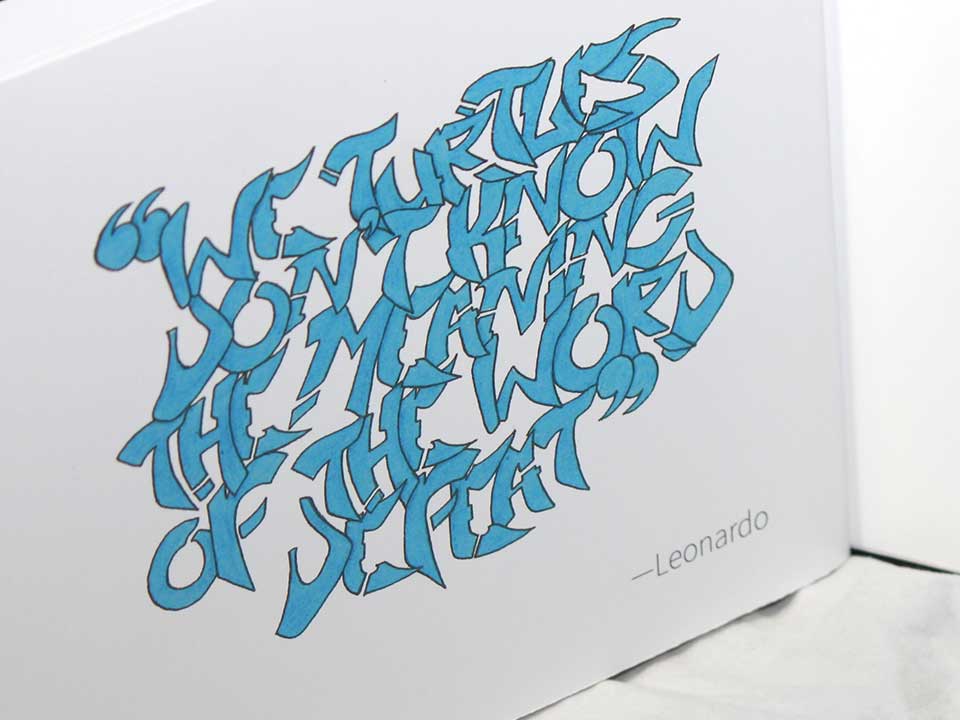 “WE TURTLES
DON'T KNOW
THE MEANING
OF THE WORD
DEFEAT”
—Leonardo